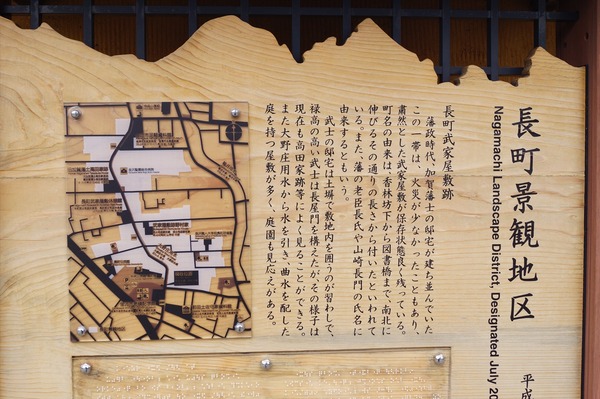 長町景観地区
Nagamachi Landscape District, Designated July 20
平成
長町武家屋敷跡
藩政時代、加賀藩士の邸宅が建ち並んでいた
この一帯は、火災が少なかったこともあり、
粛然とした武家屋敷が保存状態良く残っている。
町名の由来は、香林坊下から図書橋まで、南北に
伸びるその通りの長さから付いたといわれて
いる。また、藩の老臣長氏や山崎長門の氏名に
由来するともいう。
武士の邸宅は土塀で敷地内を囲うのが習わしで、
禄高の高い武士は長屋門を構えたが、その様子は
現在も高田家跡等によく見ることができる。
また大野庄用水から水を引き、曲水を配した
庭を持つ屋敷が多く、庭園も見応えがある。